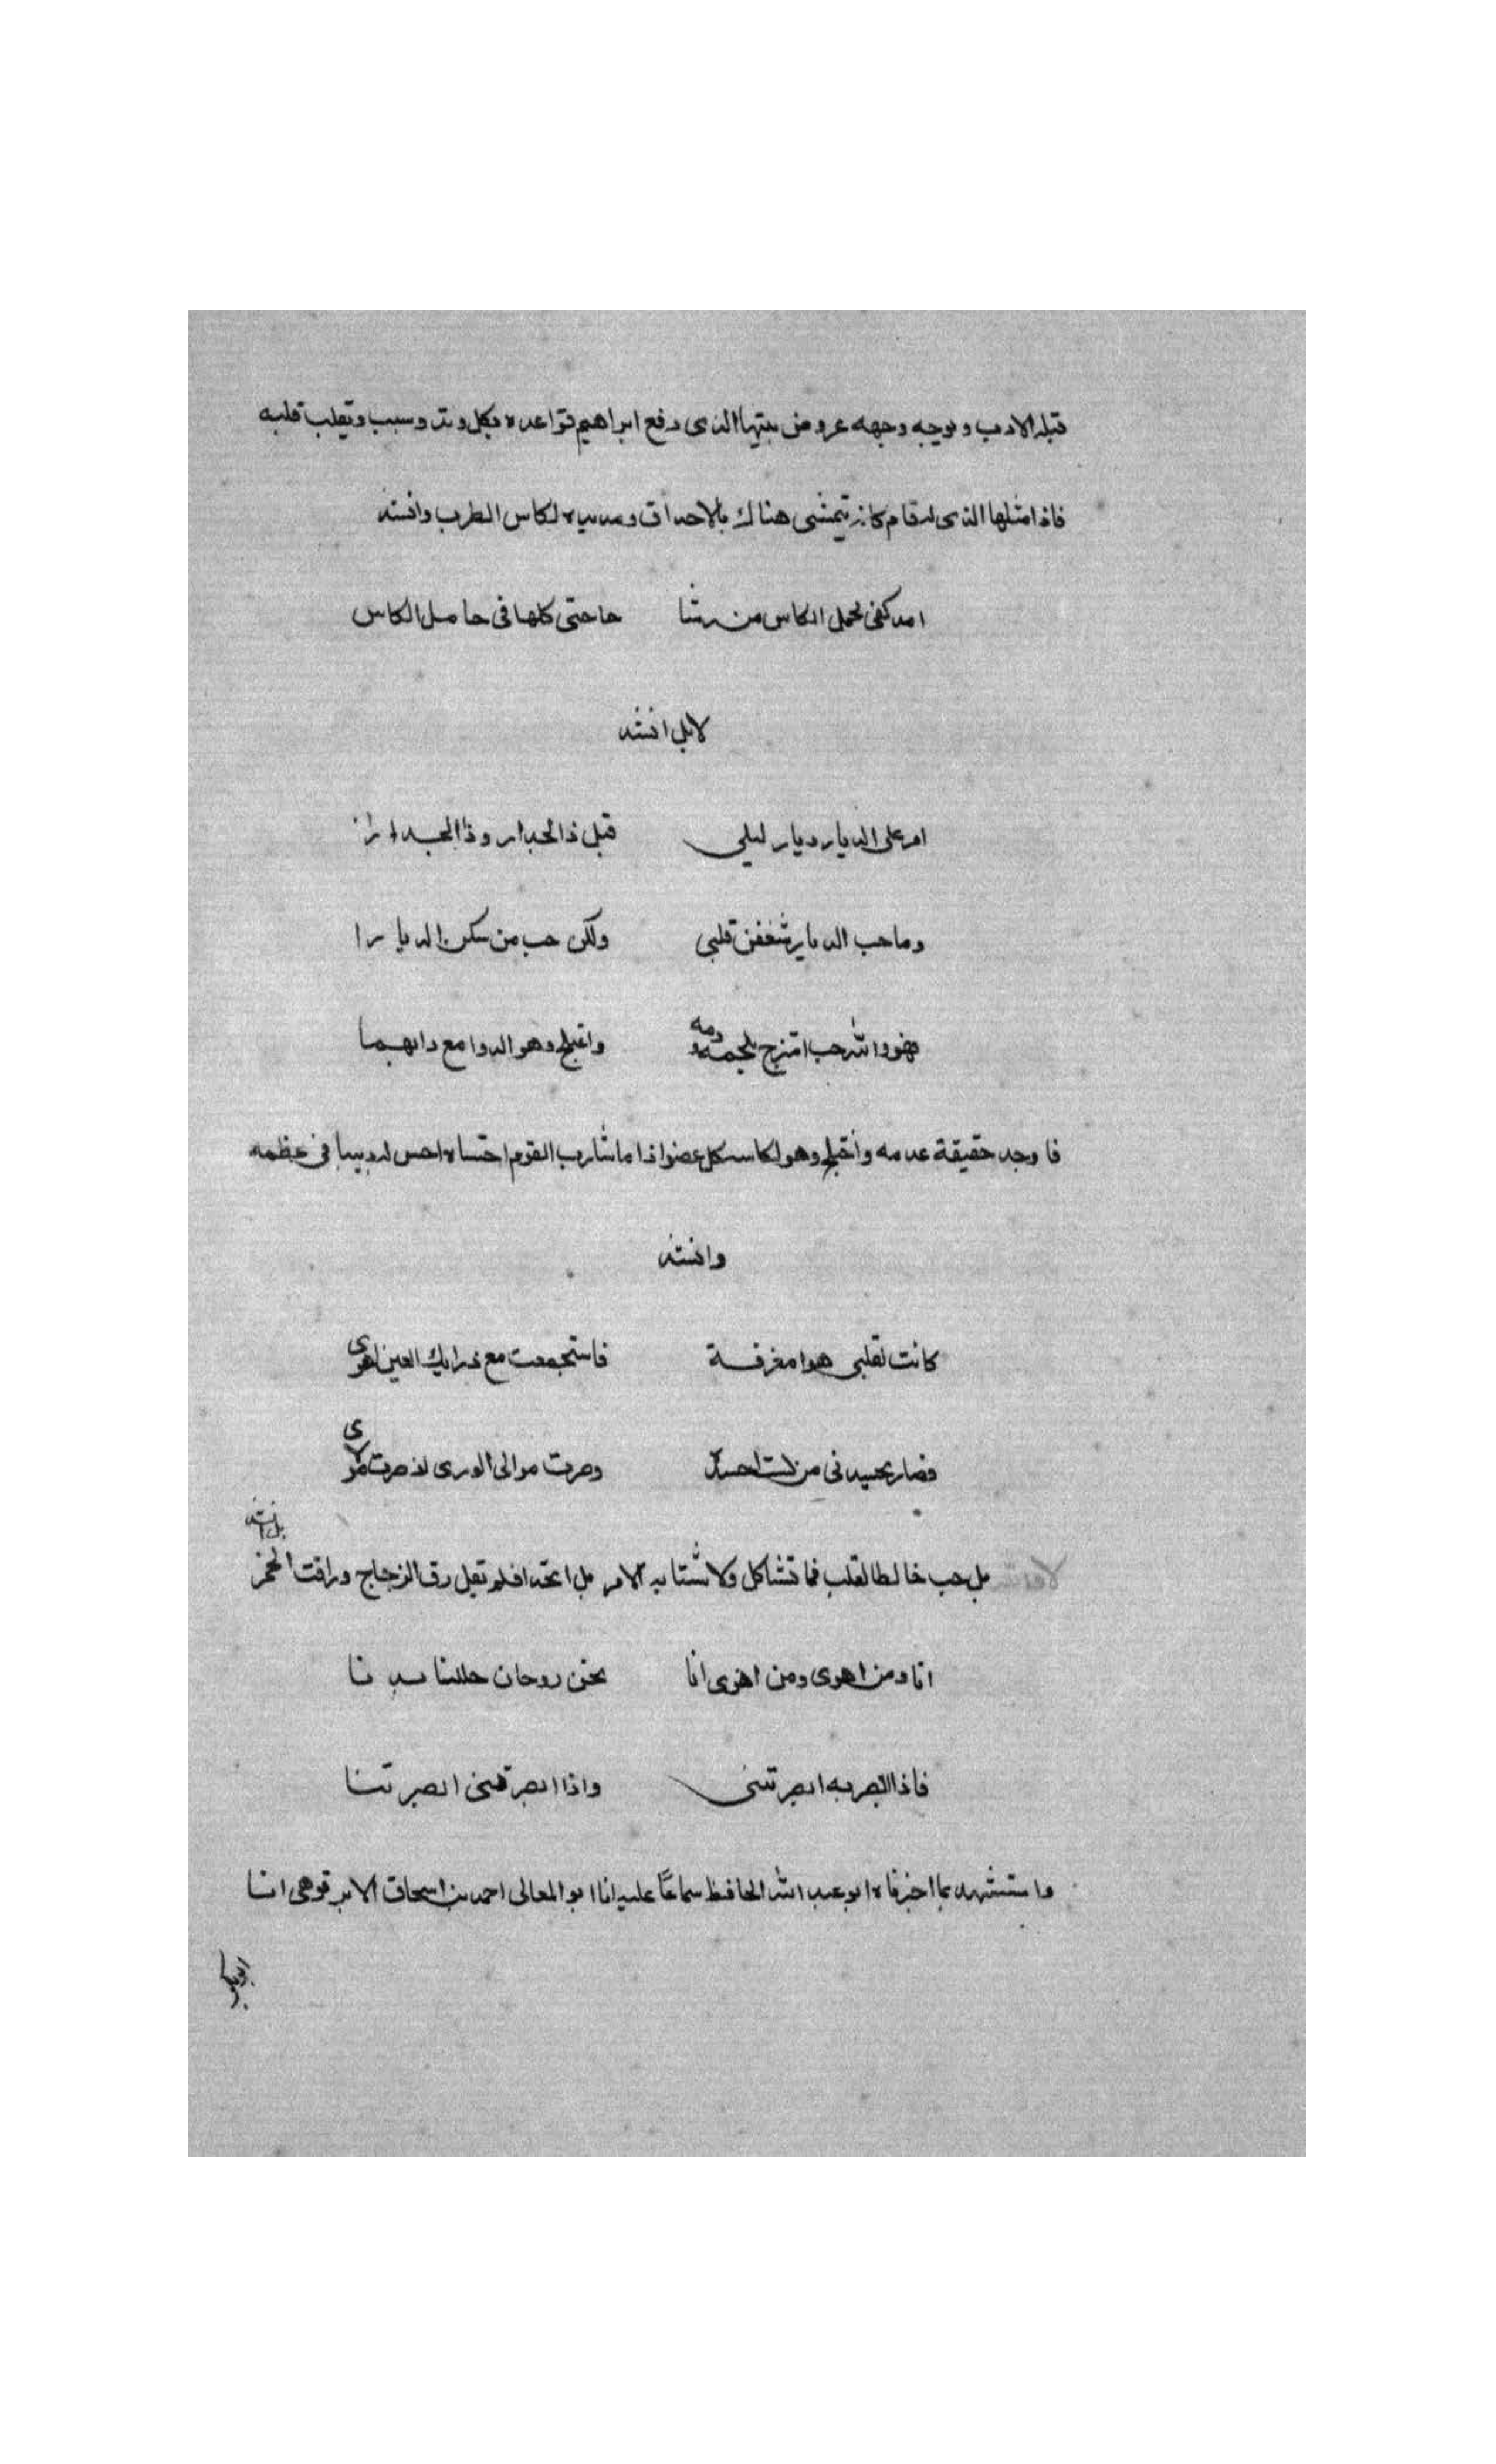 قبلة الادب و بوجه وجهه عروض بيتها الذى رفع ابراهيم قواعده بكل وتد وسبب ويقلب قلبه
فاذا مثلها الذى له قام كانه يتمشى هناك بالاحداق ومد يده لكاس الطرب وانشد
امد كفى لحمل الكاس من رشا حاجتى كلها فى حامل الكاس
لا بل انشد
امر على الديار ديار ليلى اقبل ذا الجدار وذا الجدارا
وما حب الديار شغفن قلبى ولكن حب من سكن الديارا
فهو والله حب امتزج بلحمه ودمه واختلج وهو الدوا مع دايهما
فاوجد حقيقة عدمه واختلج وهو لكاسه كل عضو اذا ما شارب القوم احتساه احس له دبيبا فى عظمه
وانشد
كانت لقلبى هوا مفرقة فاستجمعت مع ذرايك العين اهوى
فصار يحسدنى من كنت احسده وصرت موالى الورى اذ صرت مولاى
بل حب خالط القلب فما تشاكل ولا تشابه الامر بل اتحدا فلم تقل رق الزجاج وراقت الخمر
بل انشد
انا ومن اهوى ومن اهوى انا نحن روحان حللنا بدنا
فاذا ابصرته ابصرتنى واذا ابصرتنى ابصرتنا
واستشهد بما اخبرناه ابو عبد الله الحافظ سماعا عليه انا ابو المعالى احمد بن اسحاق الابرقوهى انا